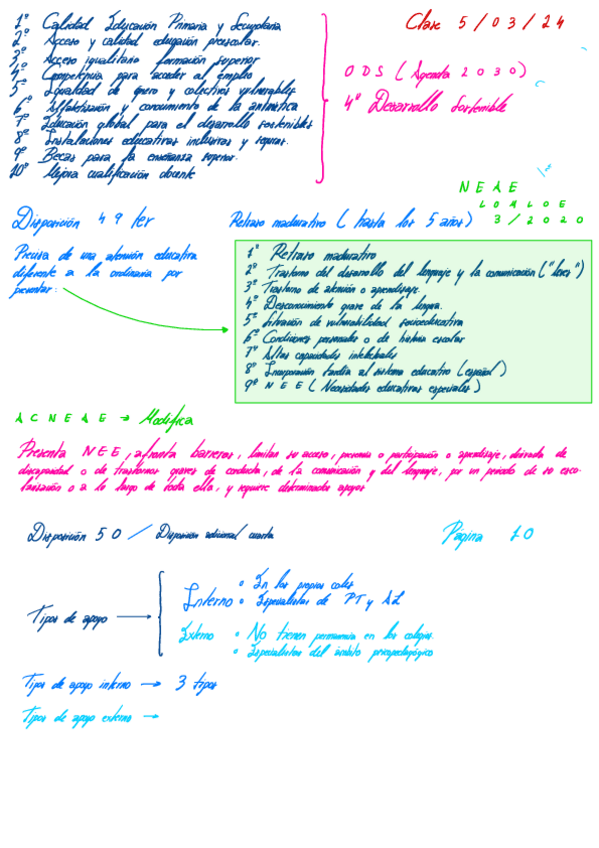 Clase 5/03/24
1º Calidad Educación Primaria y Secundaria
2º Acceso y calidad educación preescolar.
3º Acceso igualitario formación superior
4º Competencia para acceder al empleo
5º Igualdad de género y colectivos vulnerables
6º Alfabetización y conocimiento de la aritmética
7º Educación global para el desarrollo sostenibles
8º Instalaciones educativas inclusivas y seguras.
9º Becas para la enseñanza superior.
10º Mejora cualificación docente
ODS (Agenda 2030)
4º Desarrollo Sostenible
NEAE
LOMLOE
3/2020
Disposición 49 ter
Retraso madurativo (hasta los 5 años)
Precisa de una atención educativa
diferente a la ordinaria por
presentar:
1º Retraso madurativo
2º Trastorno del desarrollo del lenguaje y la comunicación ("leves")
3º Trastorno de atención o aprendizaje.
4º Desconocimiento grave de la lengua.
5º Situación de vulnerabilidad socioeducativa
6º Condiciones personales o de historia escolar
7º Altas capacidades intelectuales
8º Incorporación tardía al sistema educativo (español)
9º NEE (Necesidades educativas especiales)
ACNEAE → Modifica
Presenta NEE, afronta barreras, limitan su acceso, presencia o participación o aprendizaje, derivada de
discapacidad o de trastornos graves de conducta, de la comunicación y del lenguaje, por un periodo de su esco-
larización o a lo largo de toda ella, y requiere determinados apoyos
Disposición 50 / Disposición adicional cuarta
Página 10
Tipos de apoyo →
Interno
• En los propios coles
• Especialistas de PT y AL
Externo
• No tienen permanencia en los colegios.
• Especialistas del ámbito psicopedagógico
Tipos de apoyo interno → 3 tipos
Tipos de apoyo externo →